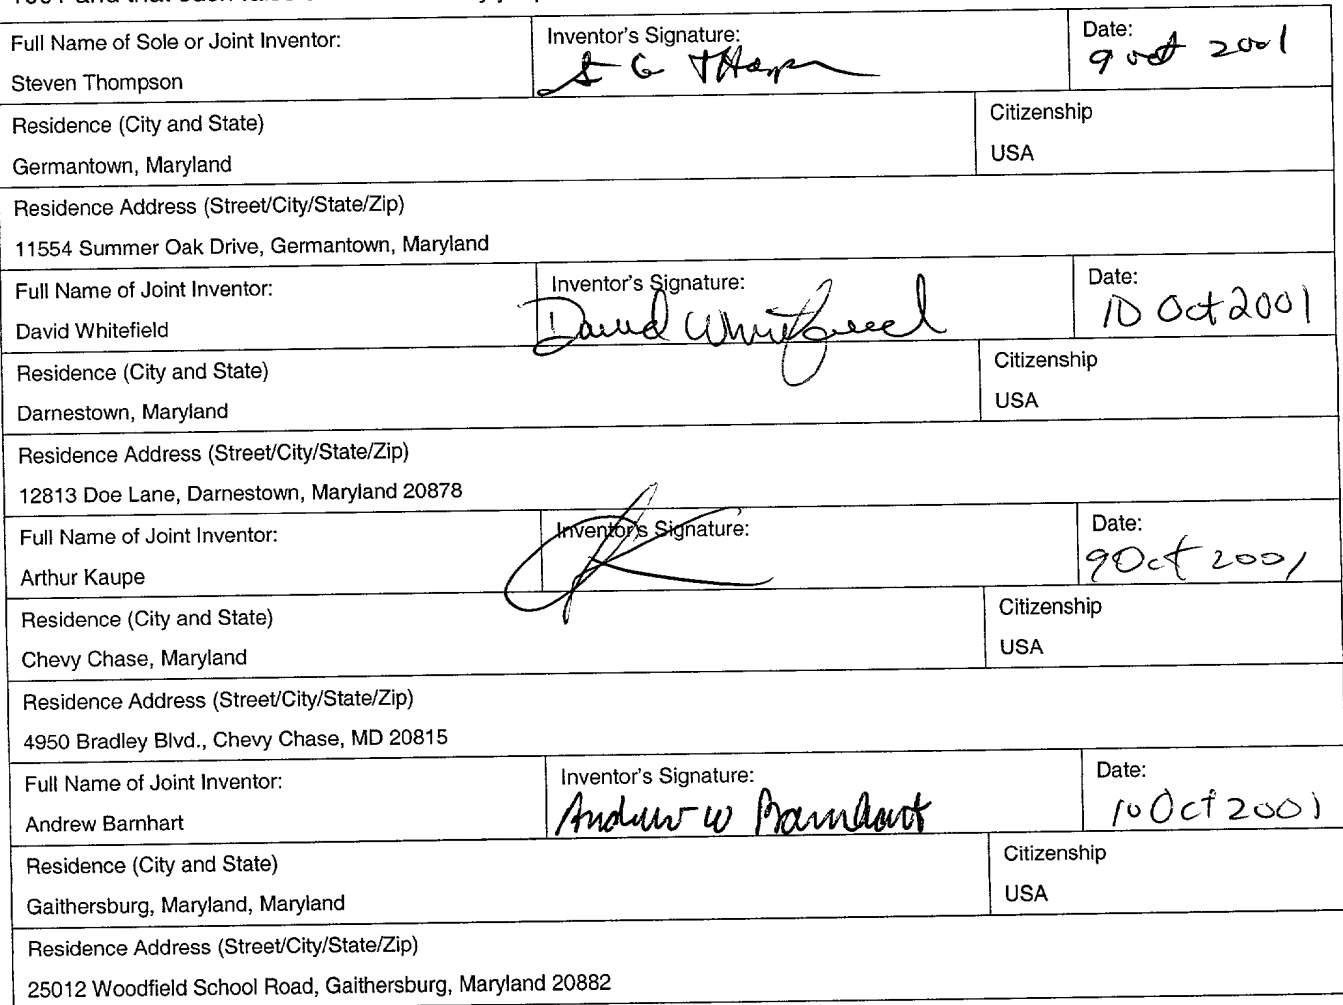 Full Name of Sole or Joint Inventor:
Steven Thompson
Inventor's Signature:
S G Thompson
Date:
9 Oct 2001
Residence (City and State)
Germantown, Maryland
Citizenship
USA
Residence Address (Street/City/State/Zip)
11554 Summer Oak Drive, Germantown, Maryland
Full Name of Joint Inventor:
David Whitefield
Inventor's Signature:
David Whitefield
Date:
10 Oct 2001
Residence (City and State)
Darnestown, Maryland
Citizenship
USA
Residence Address (Street/City/State/Zip)
12813 Doe Lane, Darnestown, Maryland 20878
Full Name of Joint Inventor:
Arthur Kaupe
Inventor's Signature:
Date:
9 Oct 2001
Residence (City and State)
Chevy Chase, Maryland
Citizenship
USA
Residence Address (Street/City/State/Zip)
4950 Bradley Blvd., Chevy Chase, MD 20815
Full Name of Joint Inventor:
Andrew Barnhart
Inventor's Signature:
Andrew W Barnhart
Date:
10 Oct 2001
Residence (City and State)
Gaithersburg, Maryland, Maryland
Citizenship
USA
Residence Address (Street/City/State/Zip)
25012 Woodfield School Road, Gaithersburg, Maryland 20882